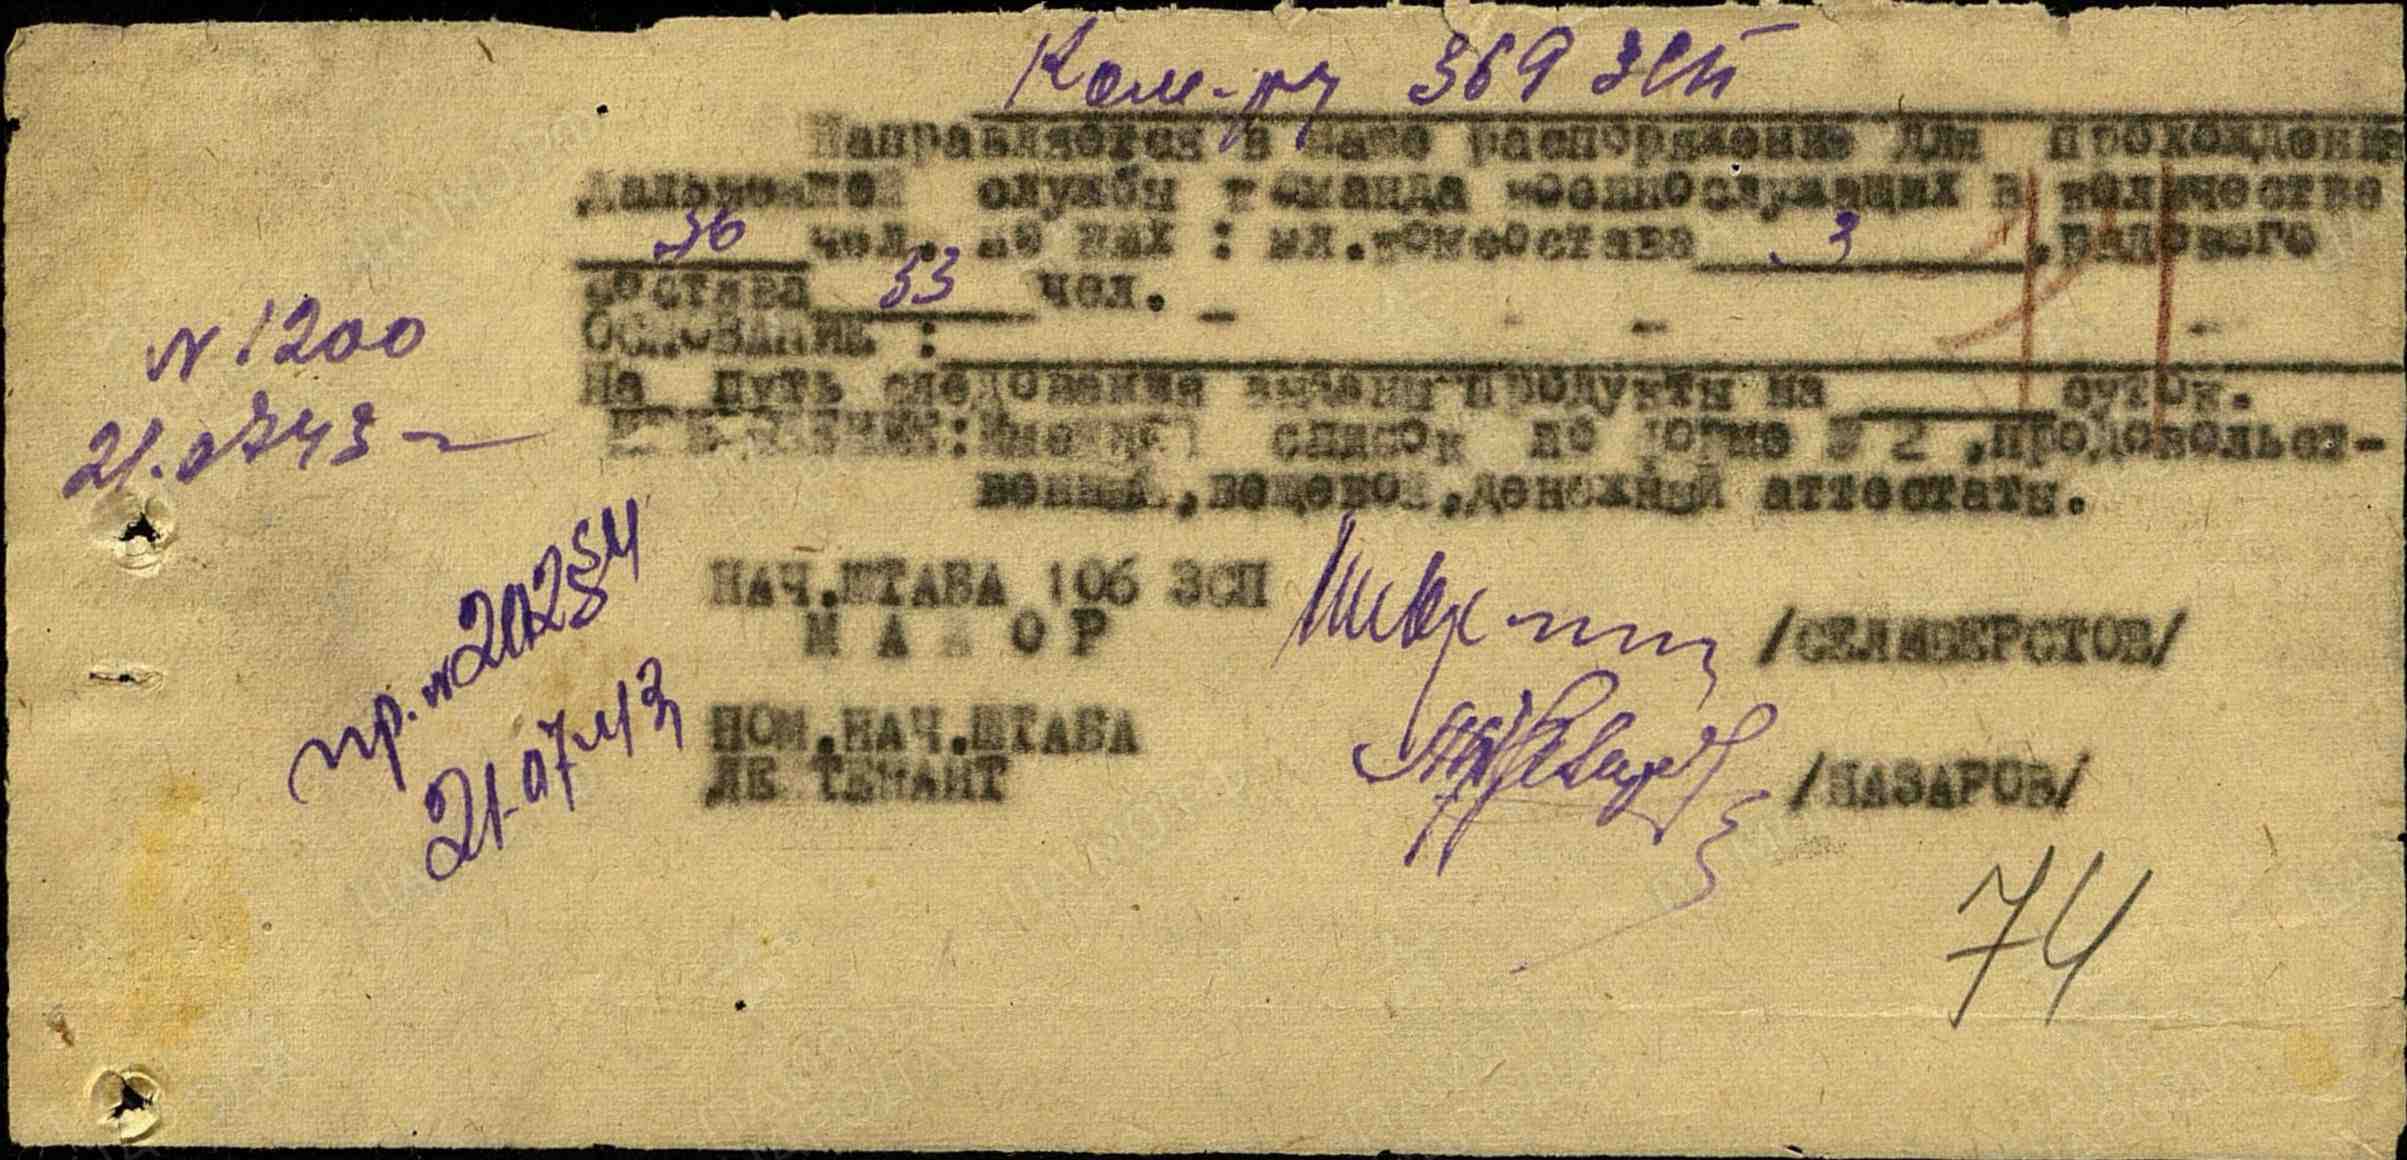 Ком-ру 369 ЗСП
Направляется в ваше распоряжение для прохождения
дальнейшей службы команда военнослужащих в количестве
36 чел. из них : мл.комсостава 3 ,рядового
состава 33 чел. -
ОСНОВАНИЕ :
На путь следования выданы продукты на суток.
:Именной список по форме № 2 ,продовольст-
венный,вещевой,денежный аттестаты.
N 1200
21.0743
НАЧ.ШТАБА 106 ЗСП
МАЙОР /СЕЛИВЕРСТОВ/
пр. N
21.07.43
ПОМ.НАЧ.ШТАБА
ЛЕЙТЕНАНТ /НАЗАРОВ/
74